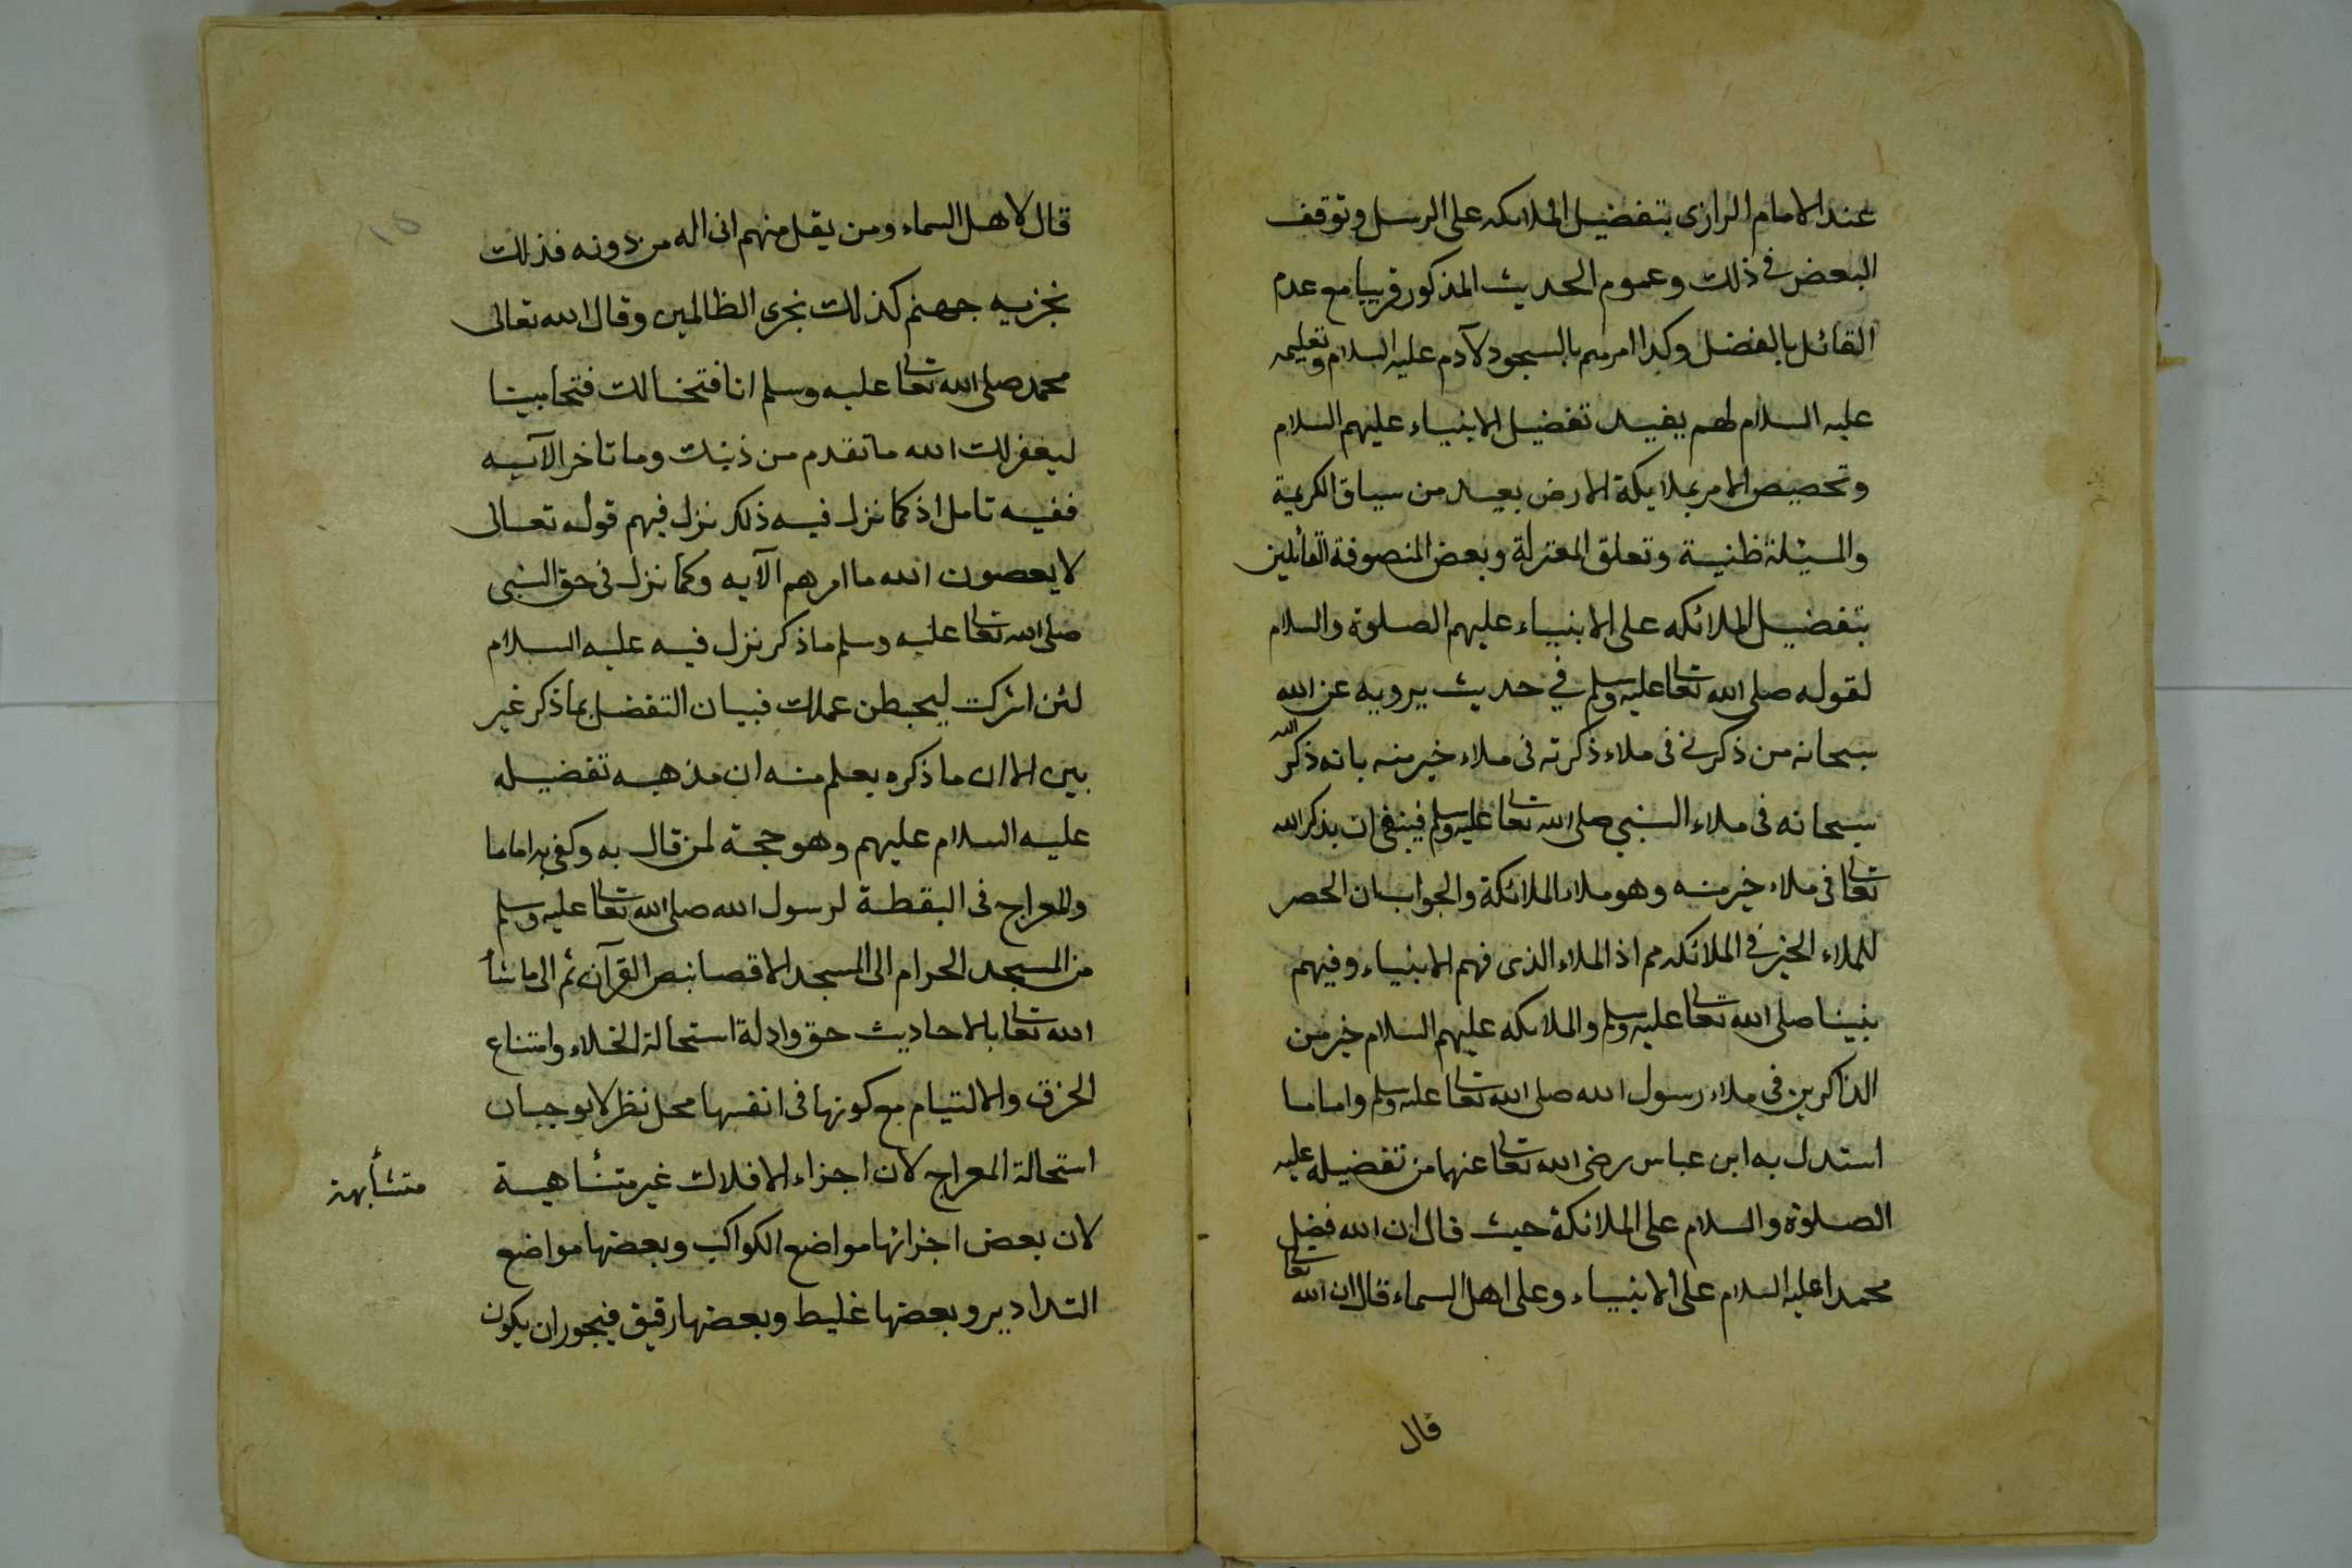 عند الامام الرازى بتفضيل الملائكه على الرسل وتوقف
البعض فى ذلك وعموم الحديث المذكور قريبا مع عدم
القائل بالفضل وكذا امرهم بالسجود لآدم عليه السلام وتعليمه
عليه السلام لهم يفيد تفضيل الانبياء عليهم السلام
وتخصيص الامر بملايكة الارض بعيد من سياق الكريمة
والمسئلة ظنية وتعلق المعتزلة وبعض المتصوفة القائلين
بتفضيل الملائكه على الانبياء عليهم الصلوة والسلام
لقوله صلى الله تعا عليه وسلم في حديث يرويه عن الله
سبحانه من ذكرنى فى ملاء ذكرته فى ملاء خير منه بانه ذكر الله
سبحانه فى ملاء النبي صلى الله تعا عليه وسلم فينبغى ان يذكر الله
تعا فى ملاء خير منه وهو ملاء الملائكة والجواب ان الحصر
للملاء الخير في الملائكه مم اذ الملاء الذى فهم الانبياء وفيهم
نبينا صلى الله تعا عليه وسلم والملائكه عليهم السلام خير من
الذاكرين فى ملاء رسول الله صلى الله تعا عليه وسلم واما ما
استدل به ابن عباس رضى الله تعا عنهما من تفضيله عليه
الصلوة والسلام على الملائكة حيث قال ان الله فضل
محمدا عليه السلام على الانبياء وعلى اهل السماء قال ان الله تعا
قال
قال لاهل السماء ومن يقل منهم انى اله من دونه فذلك
نجزيه جهنم كذلك نجزى الظالمين وقال الله تعالى
محمد صلى الله تعا عليه وسلم انا فتحنا لك فتحا مبينا
ليغفر لك الله ما تقدم من ذنبك وما تاخر الآيه
ففيه تامل اذ كما نزل فيه ذلك نزل فيهم قوله تعالى
لا يعصون الله ما امرهم الآيه وكما نزل فى حق النبى
صلى الله تعا عليه وسلم ماذكر نزل فيه عليه السلام
لئن اشركت ليحبطن عملك فبيان التفضل بما ذكر غير
بين الا ان ما ذكره يعلم منه ان مذهبه تفضيله
عليه السلام عليهم وهو حجة لمن قال به وكفى به اماما
والمعراج فى اليقظة لرسول الله صلى الله تعا عليه وسلم
من المسجد الحرام الى المسجد الاقصا بنص القرآن ثم الى ما شأ
الله تعا بالاحاديث حق وادلة استحالة الخلاء وامتناع
الخرق والالتيام مع كونها فى انفسها محل نظر لا يوجبان
استحالة المعراج لان اجزاء الافلاك غير متشاهية
متشأبهة
لان بعض اجزائها مواضع الكواكب وبعضها مواضع
التداوير وبعضها غليظ وبعضها رقيق فيجوز ان يكون